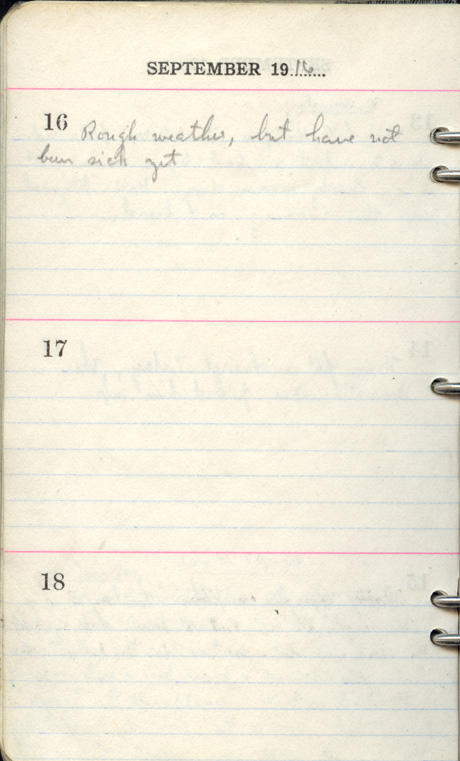 SEPTEMBER 1916
16 Rough weather, but have not
been sick yet
17
18